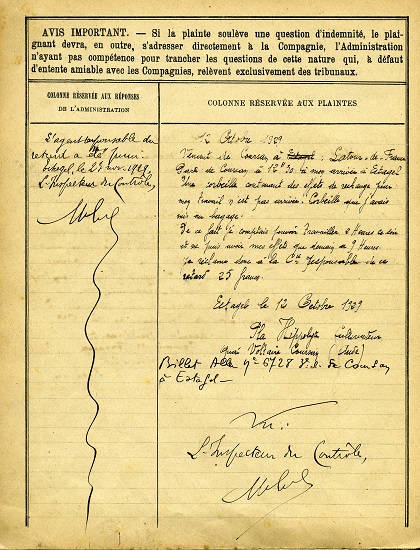 AVIS IMPORTANT. — Si la plainte soulève une question d'indemnité, le plai-
gnant devra, en outre, s'adresser directement à la Compagnie, l'Administration
n'ayant pas compétence pour trancher les questions de cette nature qui, à défaut
d'entente amiable avec les Compagnies, relèvent exclusivement des tribunaux.
COLONNE RÉSERVÉE AUX RÉPONSES
DE L'ADMINISTRATION
L'agent responsable du
retard a été puni.
le 27 nov. 1929
L'Inspecteur du Contrôle,
COLONNE RÉSERVÉE AUX PLAINTES
12 Octobre 1929
Venant de Coursan à Latour-de-France
de Coursan à 12h30 à mon arrivée à Estagel
Une corbeille contenant des effets de rechange pour
mon travail n'est pas arrivée. Corbeille que j'avais
mis au bagage.
De ce fait je comptais pouvoir travailler 2 Heures ce soir
et ne puis avoir mes effets que demain a 9 Heures
Je réclame donc à la Cie responsable de ce
retard 25 francs.
Estagel le 12 Octobre 1929
Pla Hippolyte
quai Voltaire Coursan (Aude)
Billet Aller No 6728 de Coursan
à Estagel —
Vu :
L'Inspecteur du Contrôle,